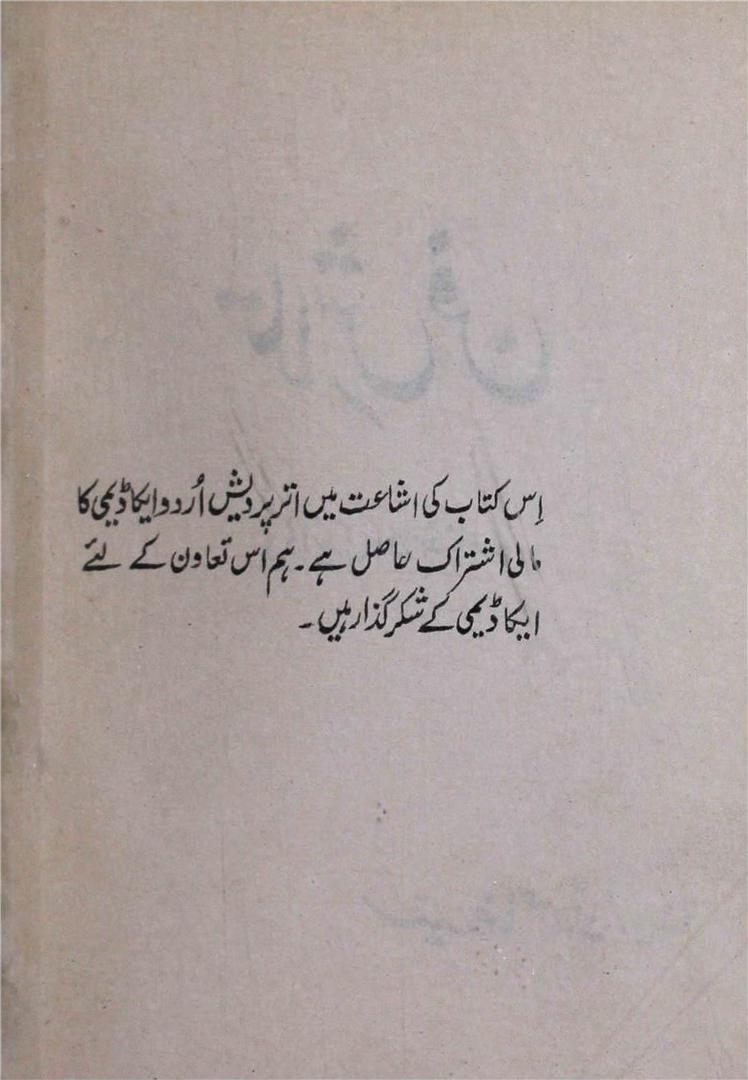 اِس کتاب کی اشاعت میں اتر پردیش اُردو ایکاڈیمی کا
مالی اشتراک حاصل ہے۔ ہم اس تعاون کے لئے
ایکاڈیمی کے شکر گذار ہیں۔